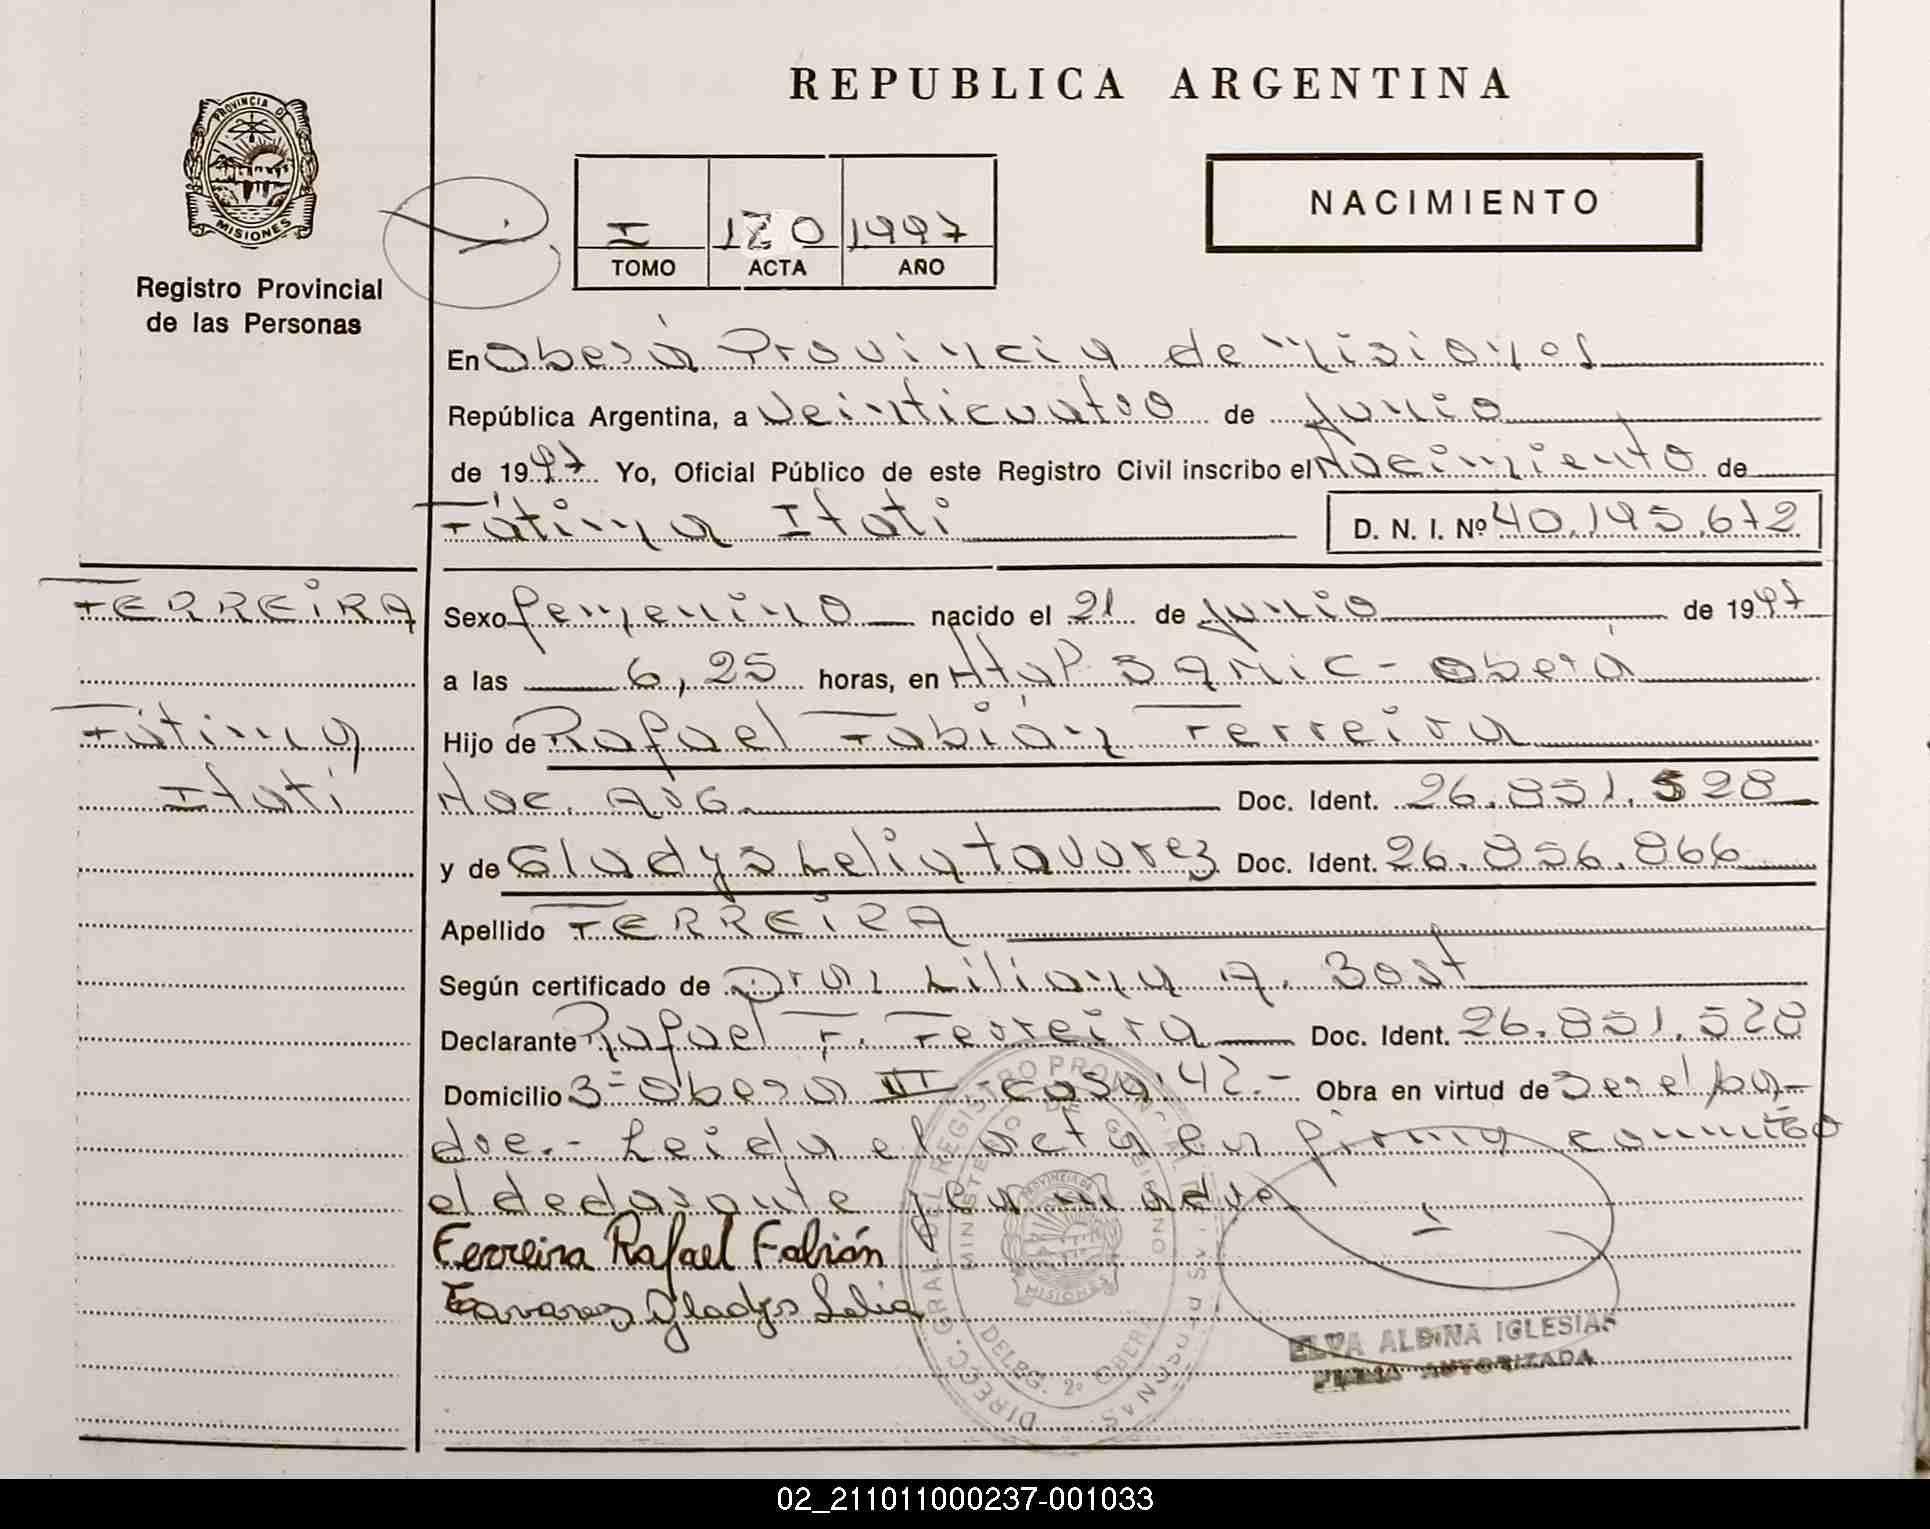 REPUBLICA ARGENTINA
PROVINCIA DE
MISIONES
Registro Provincial
de las Personas
I 1997
TOMO ACTA AÑO
NACIMIENTO
En Oberá Provincia de Misiones
República Argentina, a veinticuatro de junio
de 1997 Yo, Oficial Público de este Registro Civil inscribo el Nacimiento de
Fátima Itati D. N. I. Nº 40.195.672
FERREIRA
Fátima
Itati
Sexo femenino nacido el 21 de junio de 1997
a las 6,25 horas, en Htal. SAMIC - Oberá
Hijo de Rafael Fabián Ferreira
Nac. Arg. Doc. Ident. 26.851.528
y de Gladys Lelia Tavarez Doc. Ident. 26.856.866
Apellido FERREIRA
Según certificado de Dra. Liliana A. Bost
Declarante Rafael F. Ferreira Doc. Ident. 26.851.528
Domicilio 3- Oberá III casa 42.- Obra en virtud de ser el pa-
dre.- Leida el acta la firma conmigo
el declarante y la madre
Ferreira Rafael Fabián
Tavarez Gladys Lelia
DIRECC. GRAL. DEL REGISTRO PROVINCIAL DE LAS PERSONAS
MINISTERIO DE GOBIERNO
PROVINCIA DE
MISIONES
DELEG. 2º OBERA
ELVA ALBINA IGLESIAS
FIRMA AUTORIZADA
02_211011000237-001033